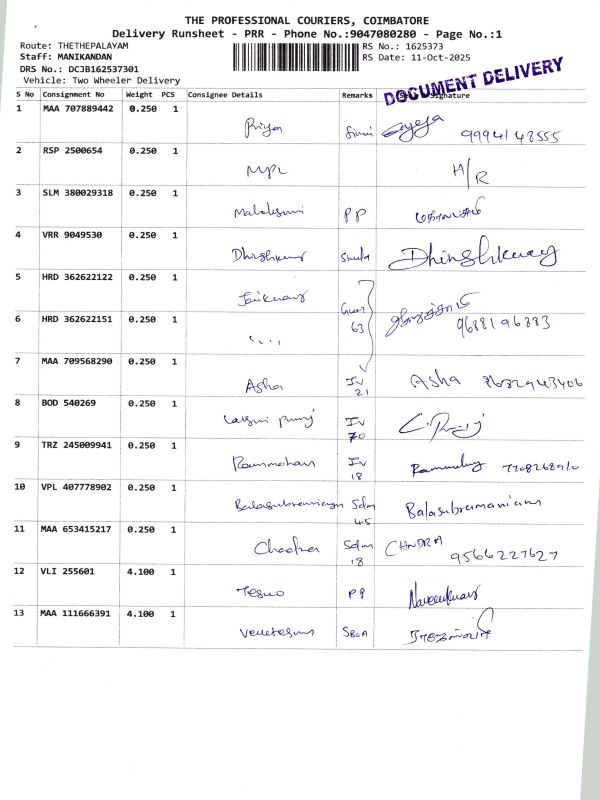 THE PROFESSIONAL COURIERS, COIMBATORE
Delivery Runsheet - PRR - Phone No.:9047080280 - Page No.:1
Route: THETHEPALAYAM RS No.: 1625373
Staff: MANIKANDAN RS Date: 11-Oct-2025
DRS No.: DCJB162537301
Vehicle: Two Wheeler Delivery
DOCUMENT DELIVERY
S No Consignment No Weight PCS Consignee Details Remarks Signature
1 MAA 707889442 0.250 1 Priya 9994148555
2 RSP 2500654 0.250 1 MPL H/R
3 SLM 380029318 0.250 1 PP
4 VRR 9049530 0.250 1 Dhinshkumar Dhinshkumar
5 HRD 362622122 0.250 1 Jaikumar
63
6 HRD 362622151 0.250 1 9688196883
7 MAA 709568290 0.250 1 Asha IV 21 Asha 8682943406
8 BOD 540269 0.250 1 IV 70
9 TRZ 245009941 0.250 1 Rammohan IV 18 7708268910
10 VPL 407778902 0.250 1 Balasubramaniyan Sdm 45 Balasubramaniam
11 MAA 653415217 0.250 1 Chandra Sdm 18 CHNDRA 9566227627
12 VLI 255601 4.100 1 PP Naveenkumar
13 MAA 111666391 4.100 1 SBOA